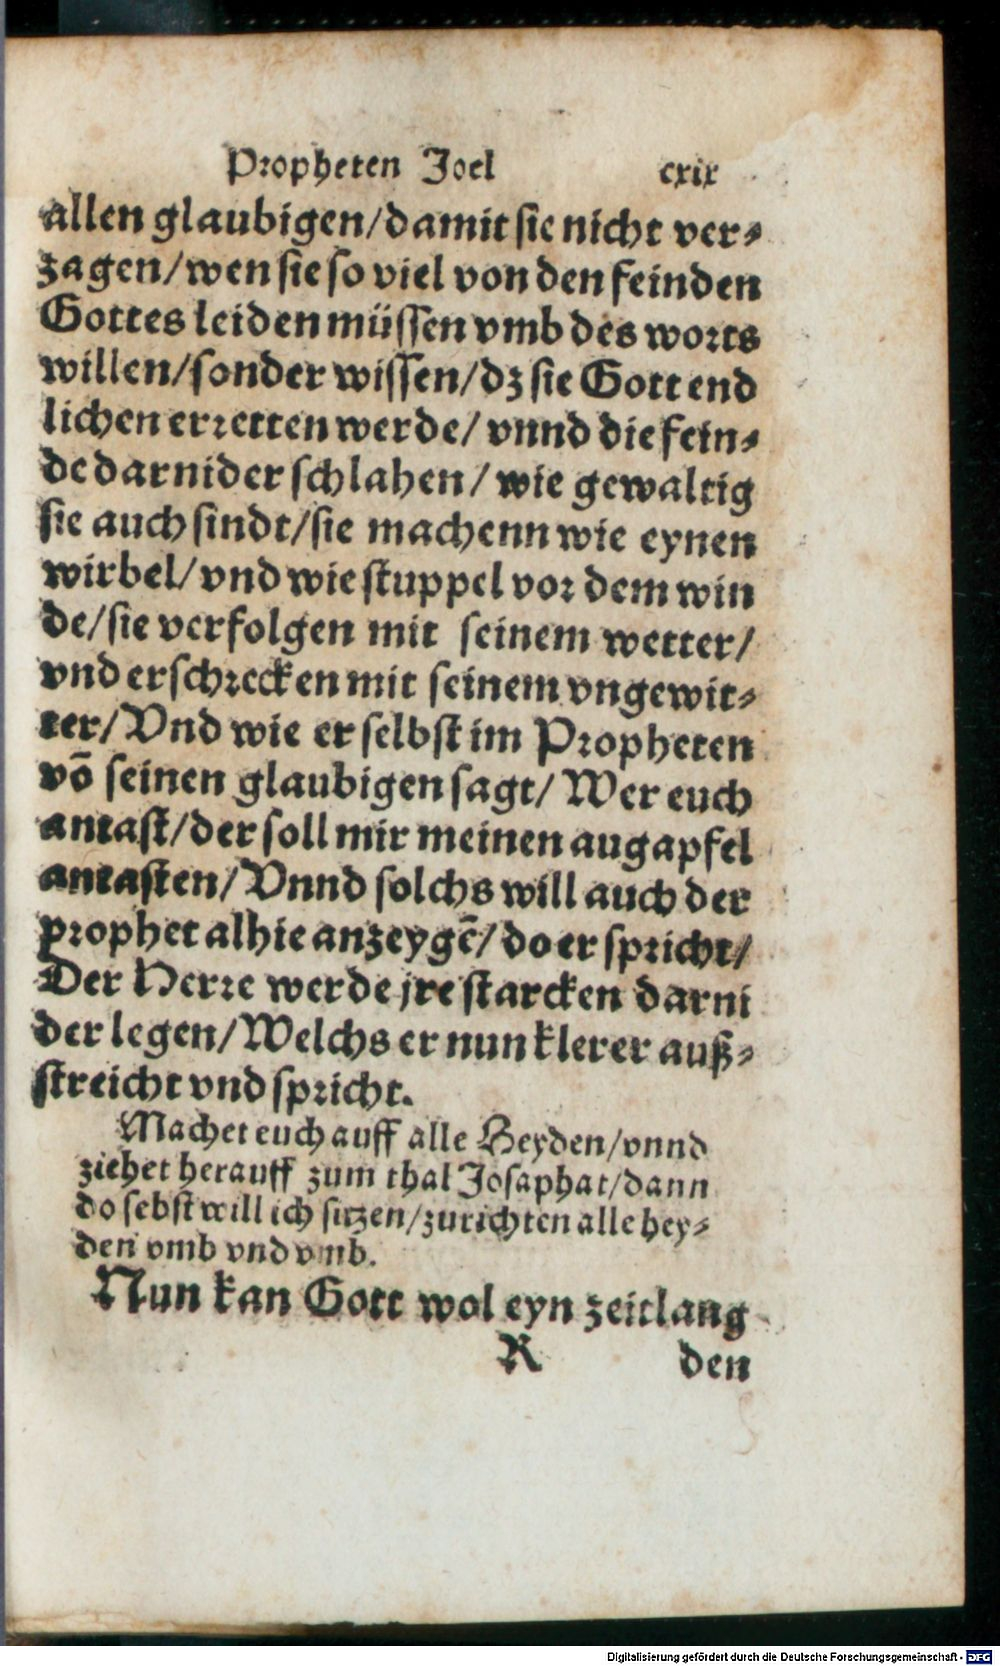 Propheten Joel cxix
allen glaubigen/damit sie nicht ver⸗
zagen/wen sie so viel von den feinden
Gottes leiden müssen vmb des worts
willen/sonder wissen/dz sie Gott end
lichen erretten werde/ vnnd die fein⸗
de darnider schlahen/ wie gewaltig
sie auch sindt/sie machenn wie eynen
wirbel/ vnd wie stuppel vor dem win
de/sie verfolgen mit seinem wetter/
vnd erschrecken mit seinem vngewit⸗
ter/ Vnd wie er selbst im Propheten
vō seinen glaubigen sagt/ Wer euch
antast/der soll mir meinen augapfel
antasten/ Vnnd solchs will auch der
prophet alhie anzeygē/ do er spricht/
Der Herre werde jre starcken darni
der legen/ Welchs er nun klerer auß⸗
streicht vnd spricht.
Machet euch auff alle Heyden/vnnd
ziehet herauff zum thal Josaphat/dann
do sebst will ich sitzen/zurichten alle hey⸗
den vmb vnd vmb.
Nun kan Gott wol eyn zeitlang
R den
Digitalisierung gefördert durch die Deutsche Forschungsgemeinschaft - DFG